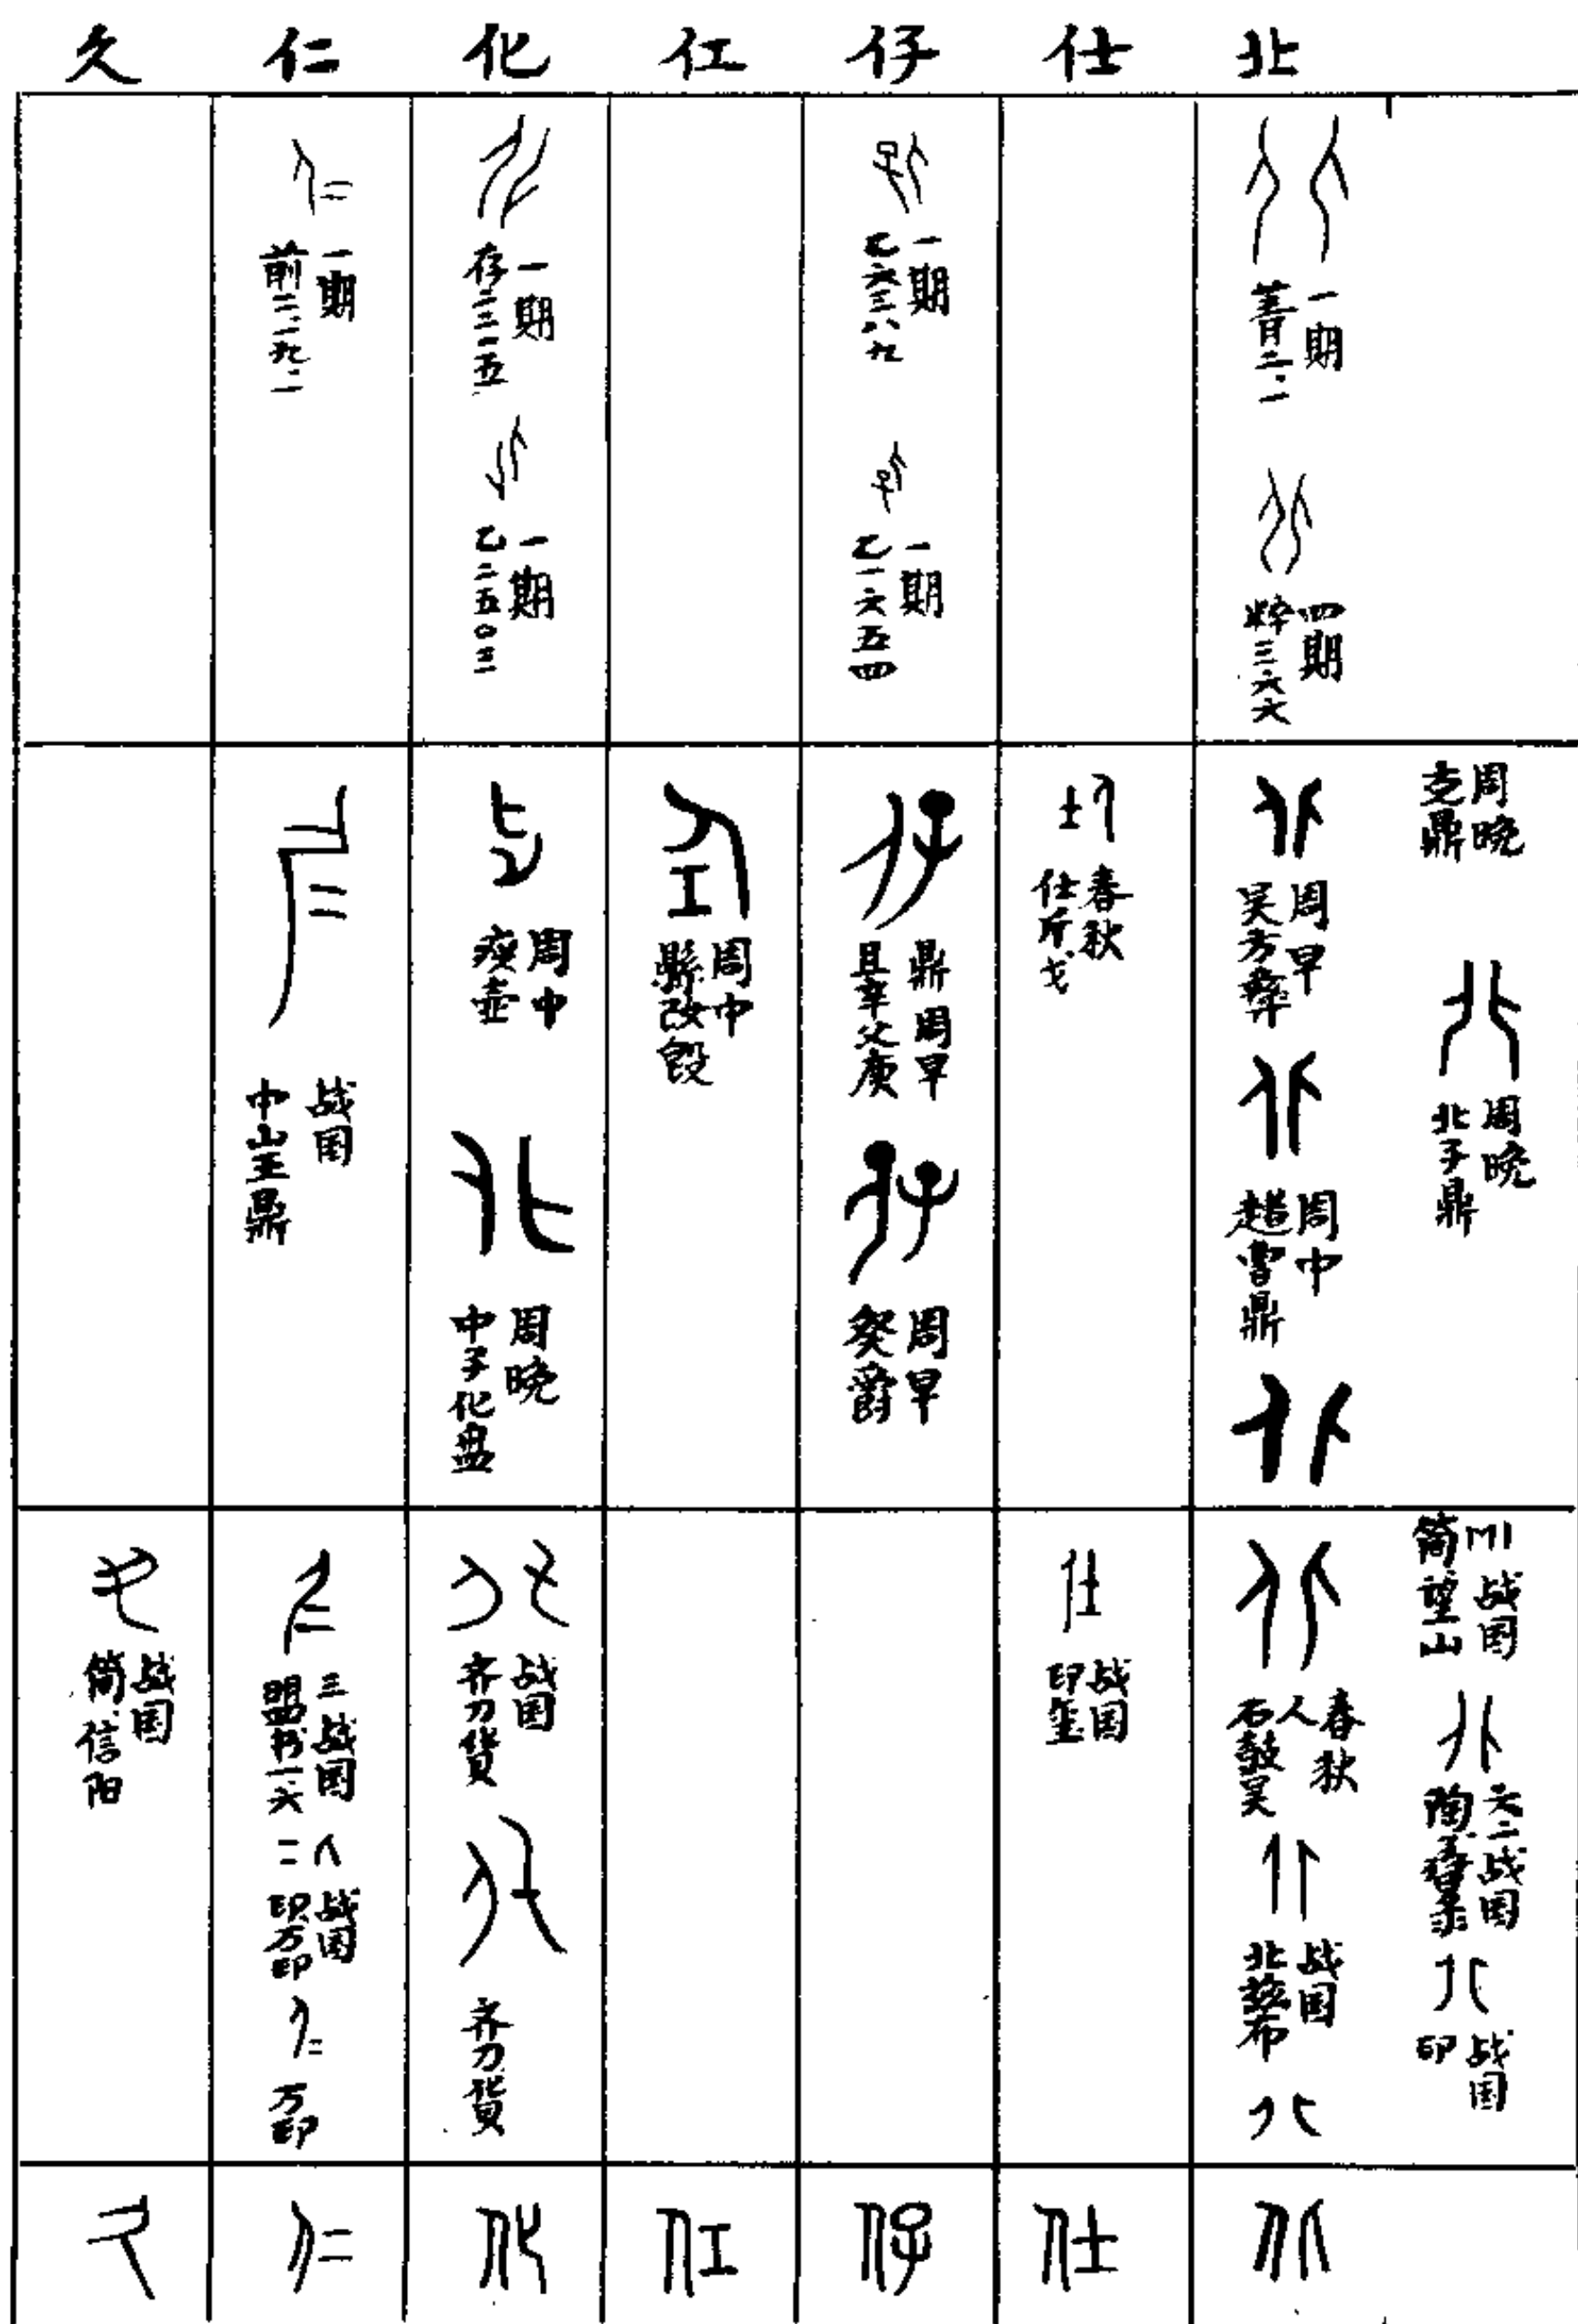 久 仁 化 仜 仔 仕 北
一期
前二·一九·一
一期
存二二一五
一期
乙二五〇三
一期
乙六三八九
一期
乙一六五四
一期
菁二·一
四期
粹三六六
战国
中山王鼎
周中
𤼈壶
周晚
中子化盘
周中
县改𣪘
鼎 周早
且辛父庚
周早
癸爵
春秋
仕斤戈
周早
吴方彝
周中
趞曹鼎
周晚
克鼎
周晚
北子鼎
战国
简信阳
三 战国
盟书一·六
战国
印万印
万印
战国
齐刀货
齐刀货
战国
印玺
春秋
石鼓吴人
战国
北兹布
战国
简望山
六·二 战国
陶𦥑录
战国
印
久 仁 化 仜 仔 仕 北